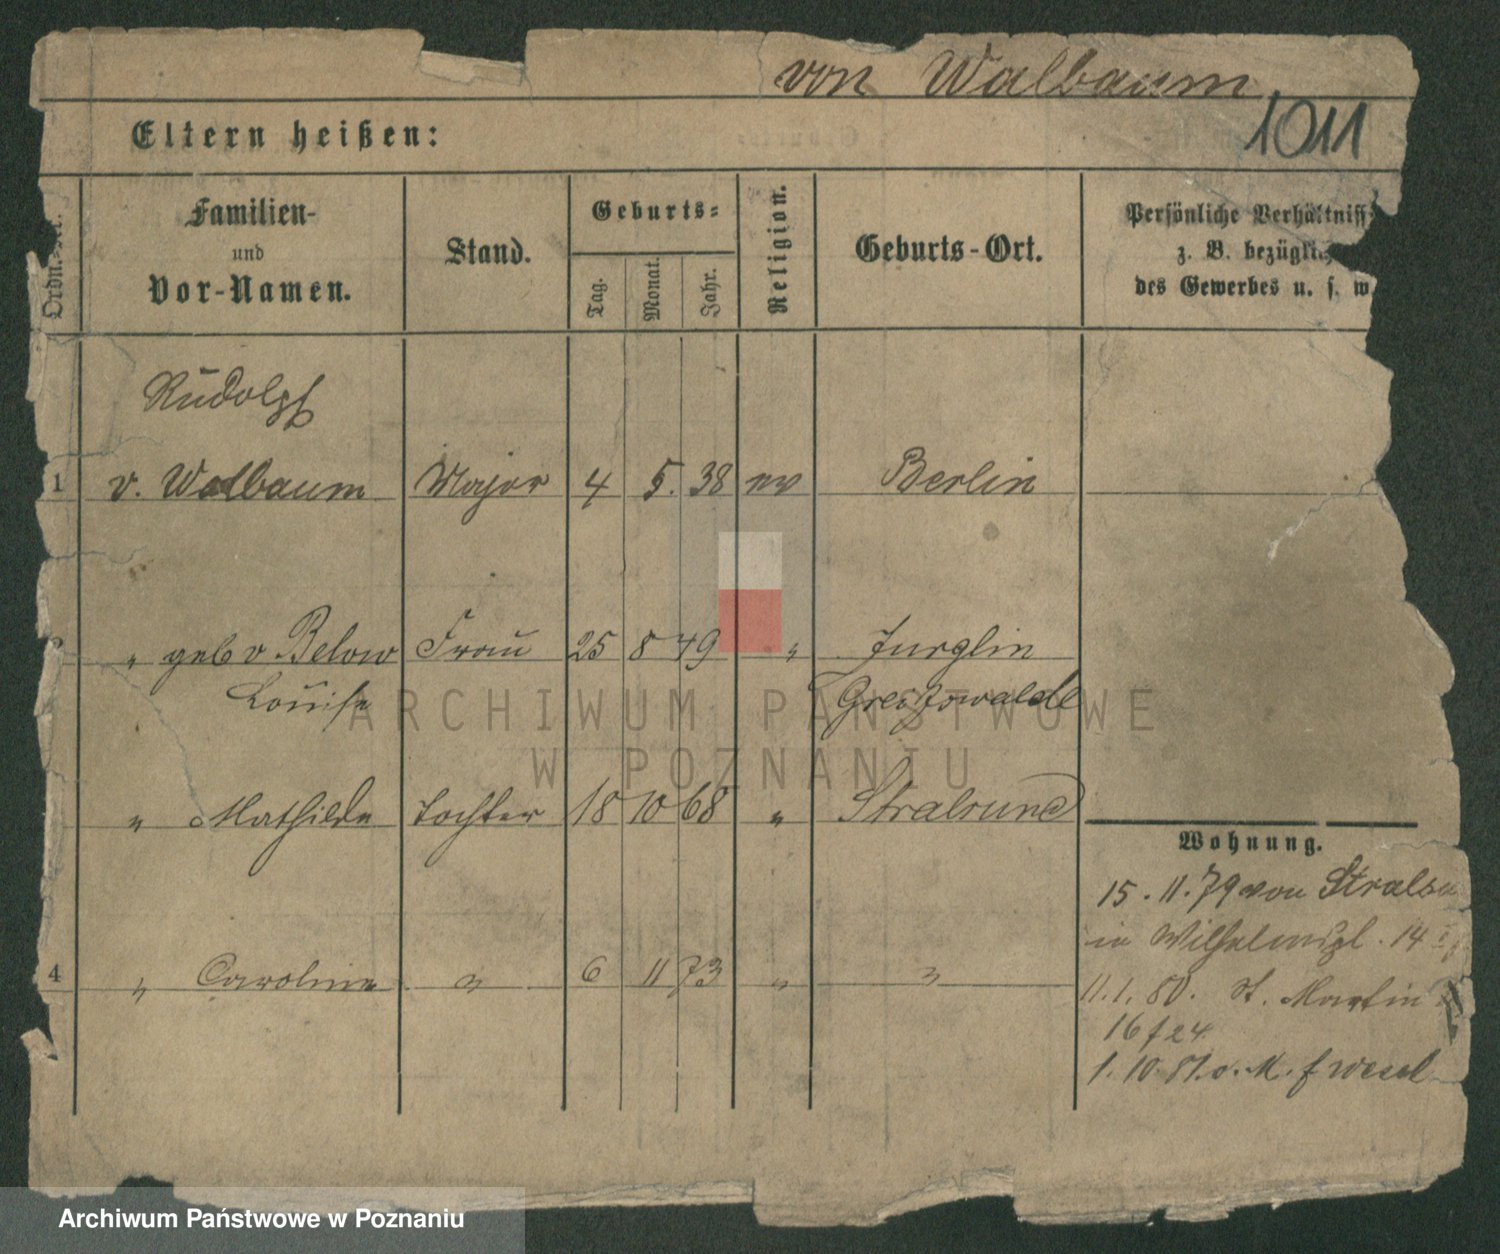 von Walbaum
1011
Eltern heißen:
Ordn.-Nr.
Familien-
und
Vor-Namen.
Stand.
Geburts-
Tag.
Monat.
Jahr.
Religion.
Geburts-Ort.
Persönliche Verhältniss
z. B. bezügli
des Gewerbes u. s. w
Rudolph
1 v. Walbaum Major 4 5. 38 ev Berlin
" geb v Below Frau 25 8 49 "
Louise
Greifswalde
" Mathilde Tochter 18 10 68 " Stralsund
4 " Caroline " 6 11 73 " "
Wohnung.
15. 11. 79 von Stralsu
in Wilhelmspl. 14
11. 1. 80. St. Martin
16 f 24
1. 10. 81. v. M. f Wesel
ARCHIWUM PAŃSTWOWE
W POZNANIU
Archiwum Państwowe w Poznaniu